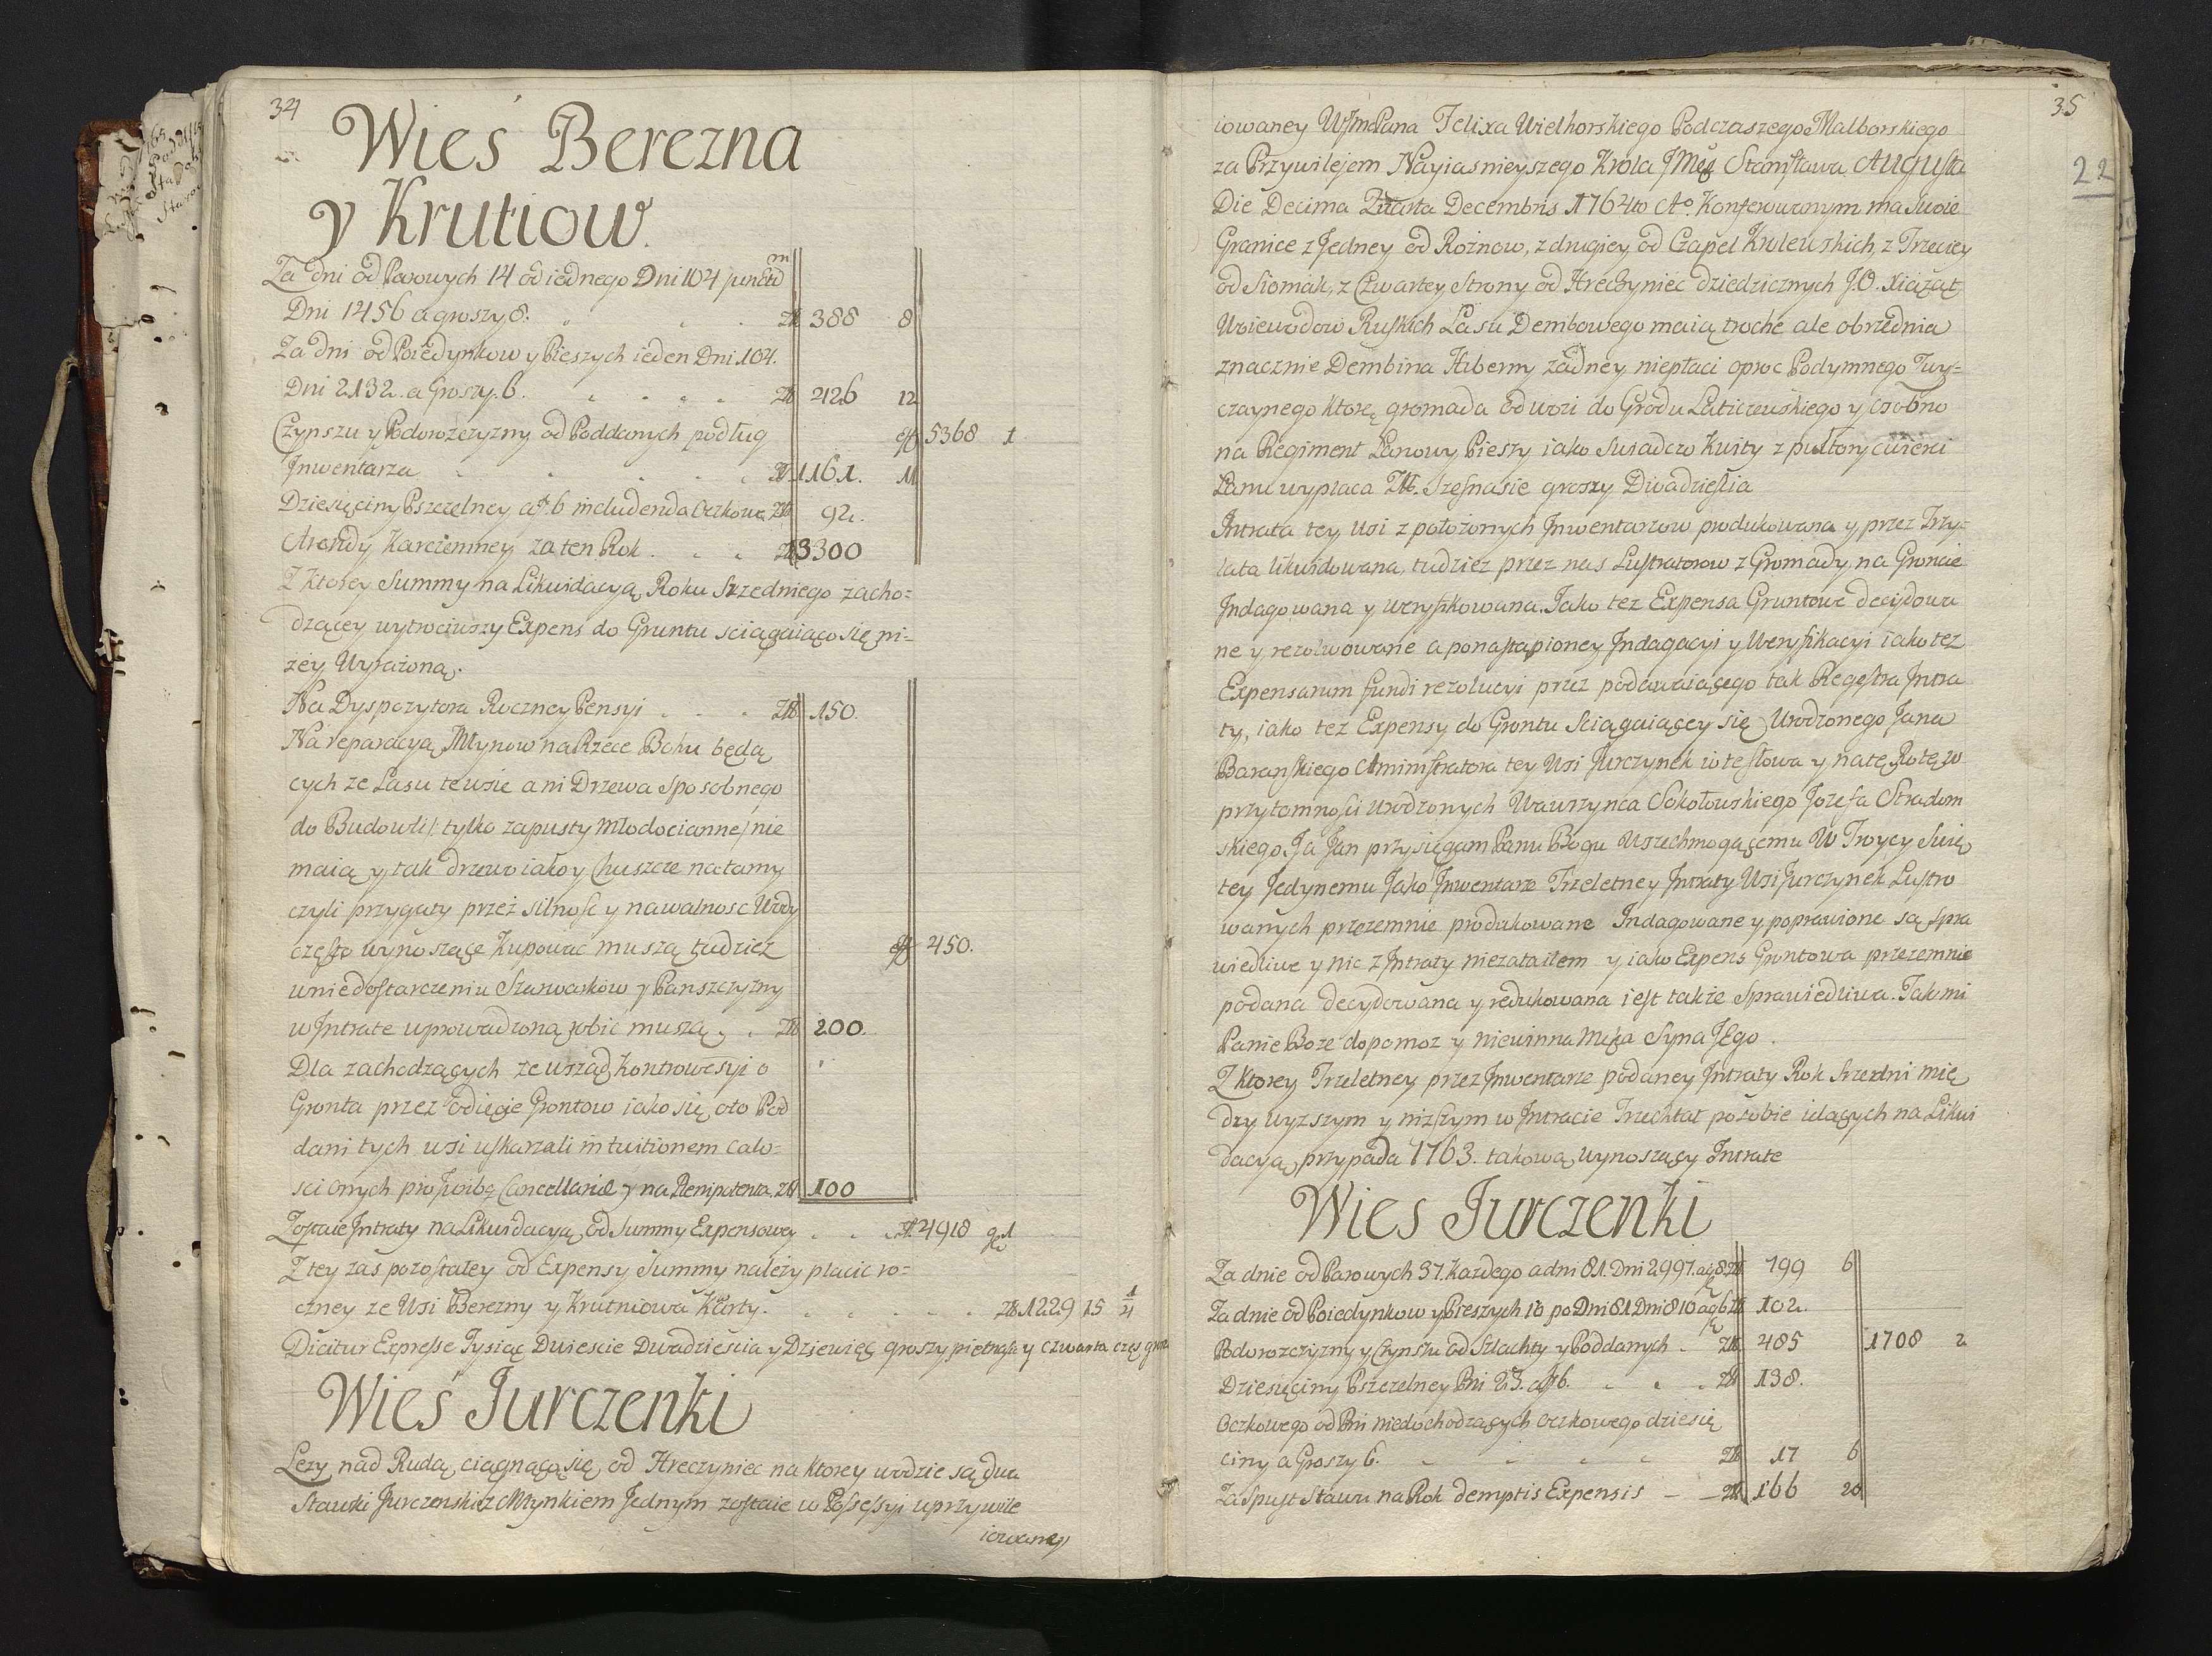 34
Wieś Berezna
y Krutiow
Za dni od Parowych 14 od iednego Dni 104
Dni 1456 a groszy 8. Zł 388 8
Za dni od Poiedynkow y Pieszych ieden Dni 104.
Dni 2132. a Groszy. 6. Zł 426 12
Czynszu y Podorozczyzny od Poddanych podług 5368 1
Jnwentarza Zł 1161. 11
Dziesięciny Pszczelney af. 6 includenda Oczkowe Zł 92.
Arendy Karczemney za ten Rok Zł 3300
Z ktorey Summy na Likwidacyą Roku Srzedniego zacho=
dzącey wytrąciwszy Expens do Gruntu sciągaiąco się ni=
zey Wyrażoną.
Na Dyspozytora Roczney Pensyi Zł 150.
Na reparacyą Młynow na Rzece Bohu będą
cych ze Lasu te wsie ani Drzewa sposobnego
do Budowli /: tylko zapusty młodocianne/ nie
maią y tak drzewo iako y Chuszcze na tamy
czyli przygaty przez silnosc y nawalnosc Wody
często wynoszące Kupować muszą tudziez 450.
w niedostarczeniu Szarwarkow y Panszczyzny
w Jntrate wprowadzoną robić muszą Zł 200.
Dla zachodzących ze wsząd Kontrowesyi o
Gronta przez odięcie Grontow iako się oto Pod
dani tych wsi uskarzali in tuitionem calo=
sci onych pro Cancellariæ y na Plenipotenta Zł 100
Zostaie Jntraty na Likwidacyą od Summy Expensowey Zł 4918 g 1
Z tey zaś pozostałey od Expensy Summy należy płacic ro=
czney ze Wsi Berezny y Krutniowa Kwarty. Zł 1229 15 1/4
Dicitur Expresse Tysiąc Dwiescie Dwadziescia y Dziewięć groszy pietnaście y czwarta częś
Wieś Jurczenki
Lezy nad Rudą ciągnącą się od Hreczyniec na ktorey wodzie są dwa
Stawki Jurczenskie z Młynkiem Jednym zostaie w Possessyi uprzywile
iowaney
35
22
iowaney WJmćPana Felixa Wielhorskiego Podczaszego Malborskiego
za Przywilejem Nayiasnieyszego Krola JMęę Stanisława Augusta
Die Decima Decembris 1764to Ao. Konferowanym ma swoie
Granice z Jedney od Rożnow, z drugiey od Czapel Krulewskich, z Trzeciey
od Siomak, z Czwartey Strony od Hreczyniec dziedzicznych J.O. Xiążąt
Woiewodow Ruskich Lasu Dembowego maią troche ale obrzednia
znacznie Dembina Hiberny żadney niepłaci oproc Podymnego Zwy=
czaynego ktorę gromada odwozi do Grodu Latyczewskiego y osobno
na Regiment Łanowy Pieszy iako Swiadczo Kwity z pułtory cwierci
Łanu wypłaca Zł. Szesnasie groszy Dwadziestia
Jntrata tey Wsi z położonych Jnwentarzow produkowana y przez Trzy=
lata likwidowana, tudziez przez nas Lustratorow z Gromady na Groncie
Jndagowana y weryfikowana. Jako tez Expensa Gruntowe decydowa
ne y rezolwowane a ponastąpioney Jndagacyi y Weryfikacyi iako tez
Expensarum fundi rezolucyi przez podawaiącego tak Regestra Jntra
ty, iako tez Expensy do Grontu Sciągaiącey się Urodzonego Jana
Baranskiego Aministratora tey Wsi Jurczynek w te słowa y na tę Rotę w
przytomnosci urodzonych Wawrzynca Sokołowskiego Jozefa Stradom
skiego. Ja Jan przysięgam Panu Bogu Wszechmogącemu W Troycy Swię
tey Jedynemu Jako Jnwentarze Trzeletney Jntraty Wsi Jurczynek Lustro
wanych przezemnie produkowane Jndagowane y poprawione są spra
wiedliwe y nic z Jntraty niezataiłem y iako Expens Grontowa przezemnie
podana decydowana y redukowana iest także Sprawiedliwa. Tak mi
Panie Boze dopomoz y niewinna Męka Syna JEgo.
Z ktorey Trzeletney przez Jnwentarze podaney Jntraty Rok Srzedni mię
dzy wyzszym y nizszym w Jntracie Trzechlat po sobie idących na Likwi
dacyą przypada 1763. takową wynoszący Jntrate
Wies Jurczenki
Za dnie od Parowych 37. każdego a dni 81. Dni 2997. a g 8 Zł 799 6
Za dnie od Poiedynkow y Pieszych 10 po Dni 81 Dni 810 a g 6 Zł 102.
Podorozczyzny y Czynszu od Szlachty y Poddanych Zł 485 1708 2
Dziesięciny Pszczelney Pni 23. af 6. Zł 138.
Oczkowego od Pni niedochodzących oczkowego dziesię
ciny a Groszy 6. Zł 17 6
Za Spust Stawu na Rok demptis Expensis Zł 166 20